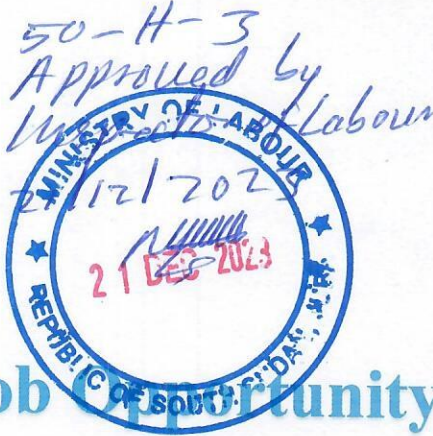 50-H-3
Approved by
Inspector of Labour
21/12/2023
MINISTRY OF LABOUR
21 DEC 2023
REPUBLIC OF SOUTH SUDAN,
ob Opportunity